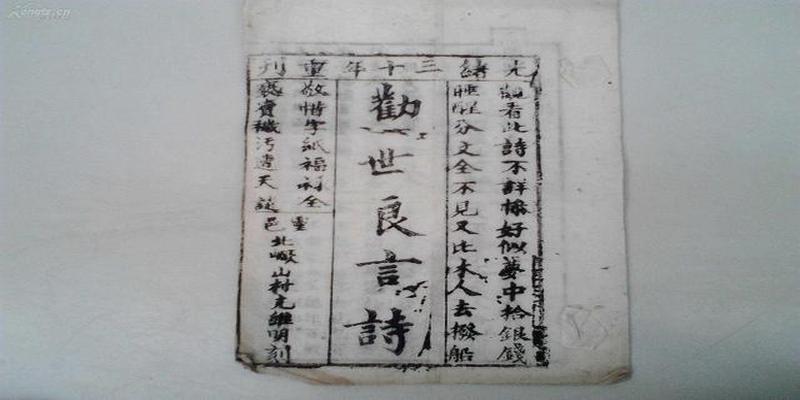 光緒三十年重刊
觀看此詩不詳㨾好似夢中拾銀錢
睡醒分文全不見又比木人去撥船
勸世良言詩
敬惜字紙福祿全
褻賣穢污遭天譴
靈邑
北巖山村克雄明刻